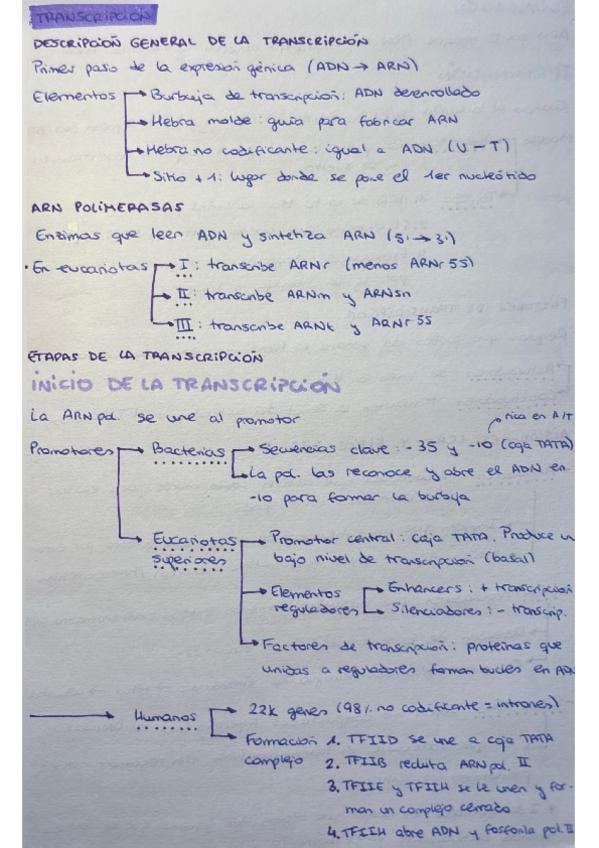 TRANSCRIPCIÓN
DESCRIPCIÓN GENERAL DE LA TRANSCRIPCIÓN
Primer paso de la expresión génica (ADN → ARN)
Elementos → Burbuja de transcripción: ADN desenrollado
→ Hebra molde: guía para fabricar ARN
→ Hebra no codificante: igual a ADN (U - T)
→ Sitio +1: lugar donde se pone el 1er nucleótido
ARN POLIMERASAS
Enzimas que leen ADN y sintetiza ARN (5' → 3')
· En eucariotas → I: transcribe ARNr (menos ARNr 5S)
→ II: transcribe ARNm y ARNsn
→ III: transcribe ARNt y ARNr 5S
ETAPAS DE LA TRANSCRIPCIÓN
INICIO DE LA TRANSCRIPCIÓN
La ARN pol. se une al promotor
rica en A/T
Promotores → Bacterias → Secuencias clave: -35 y -10 (caja TATA)
→ La pol. las reconoce y abre el ADN en
-10 para formar la burbuja
→ Eucariotas → Promotor central: caja TATA. Produce un
superiores bajo nivel de transcripción (basal)
→ Elementos → Enhancers: + transcripción
reguladores → Silenciadores: - transcrip.
→ Factores de transcripción: proteínas que
unidas a reguladores forman bucles en ADN
→ Humanos → 22k genes (98% no codificante = intrones)
→ Formación 1. TFIID se une a caja TATA
complejo 2. TFIIB recluta ARN pol. II
3. TFIIE y TFIIH se le unen y for-
man un complejo cerrado
4. TFIIH abre ADN y fosforila pol. II